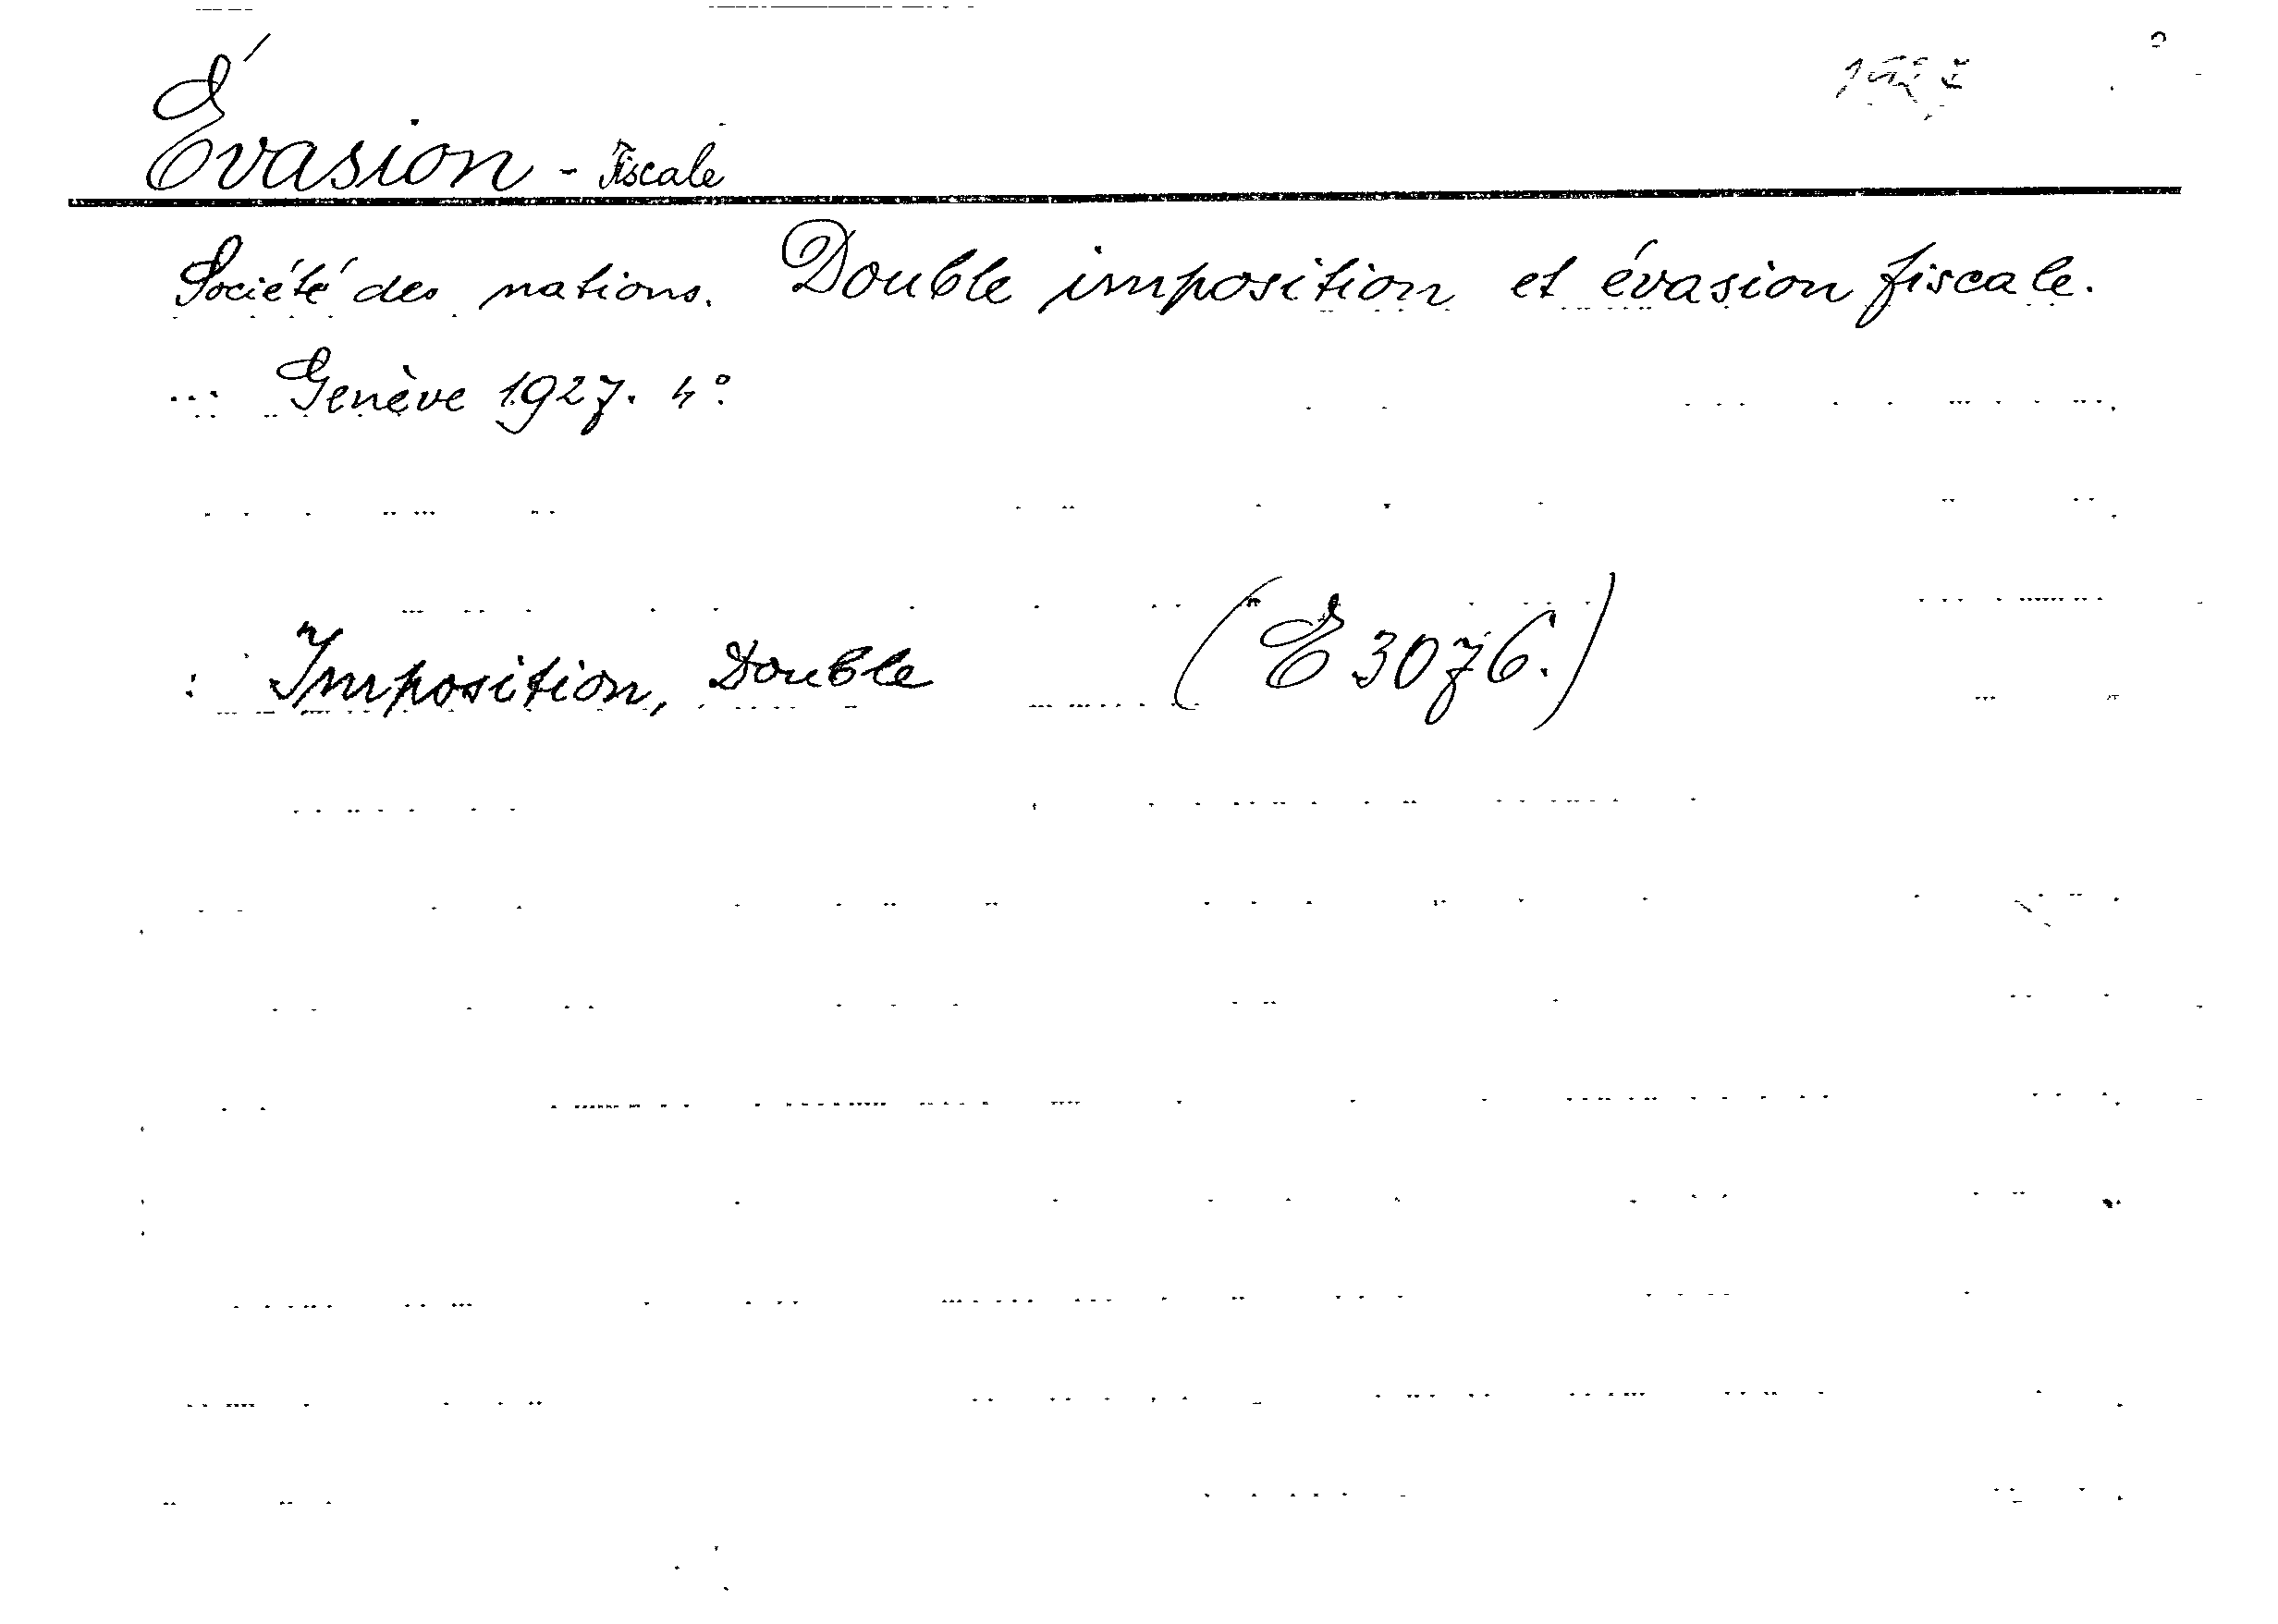 Évasion - Fiscale
Société des nations. Double imposition et évasion fiscale.
Genève 1927. 4°
Imposition, Double (E 3076.)